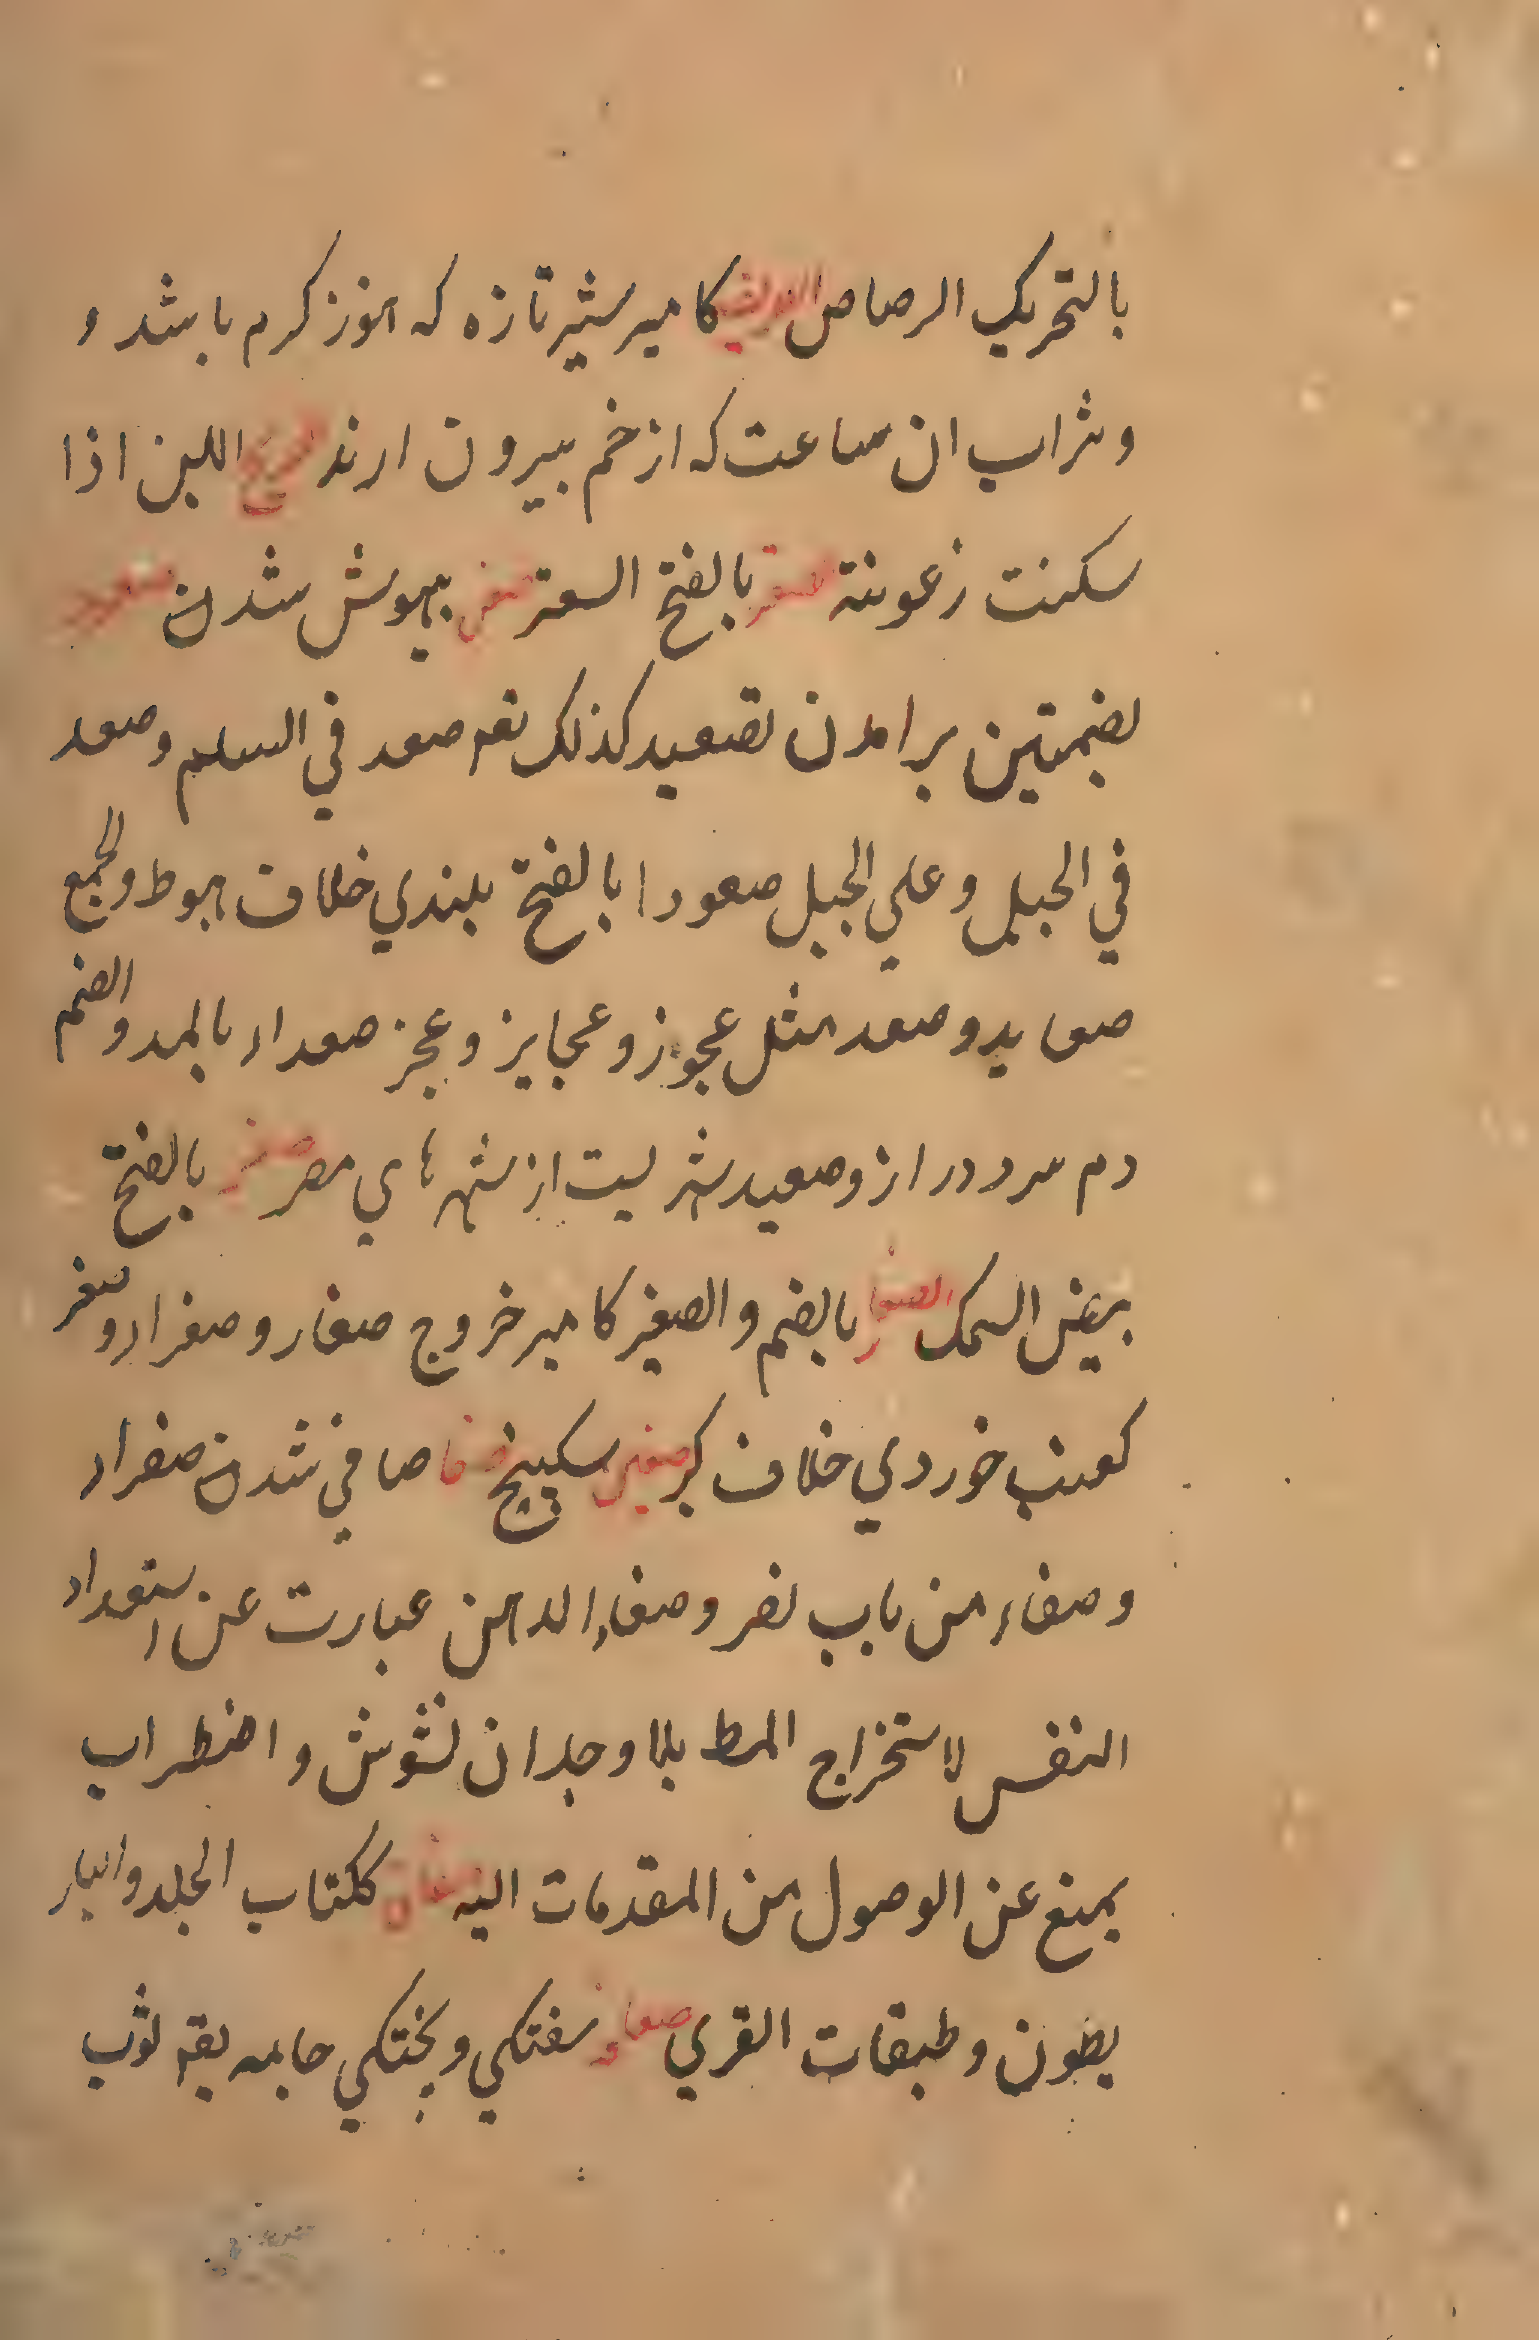 بالتحريك الرصاص الصريف كامير شير تازه كه هنوز كرم باشد و
وشراب ان ساعت كه از خم بيرون ارند صريح اللبن اذا
سكنت زعونته صعتر بالفتح السعتر صعق بيهوش شدن صعود
بضمتين برامدن تصعيد كذلك نعم صعد في السلم وصعد
في الجبل وعلي الجبل صعودا بالفتح بلندي خلاف هبوط والجمع
صعايد وصعد مثل عجوز وعجايز وعجز صعداء بالمد والضم
دم سرد دراز وصعيد شهر يست از شهرهاي مصر صغر بالفتح
بيض السمك الصغار بالضم والصغير كامير خروج صغار وصغراء وصغر
كعنب خوردي خلاف كبر صغير سكبينج صفا صافي شدن صفراء
وصفاء من باب نصر وصفاء الذهن عبارت عن استعداد
النفس لاستخراج المط بلا وجدان تشوش واضطراب
يمنع عن الوصول من المقدمات اليه صفاق ككتاب الجلد والبار
بطون وطبقات القري صفاو سفتكي وبختكي جامه يقه ثوب